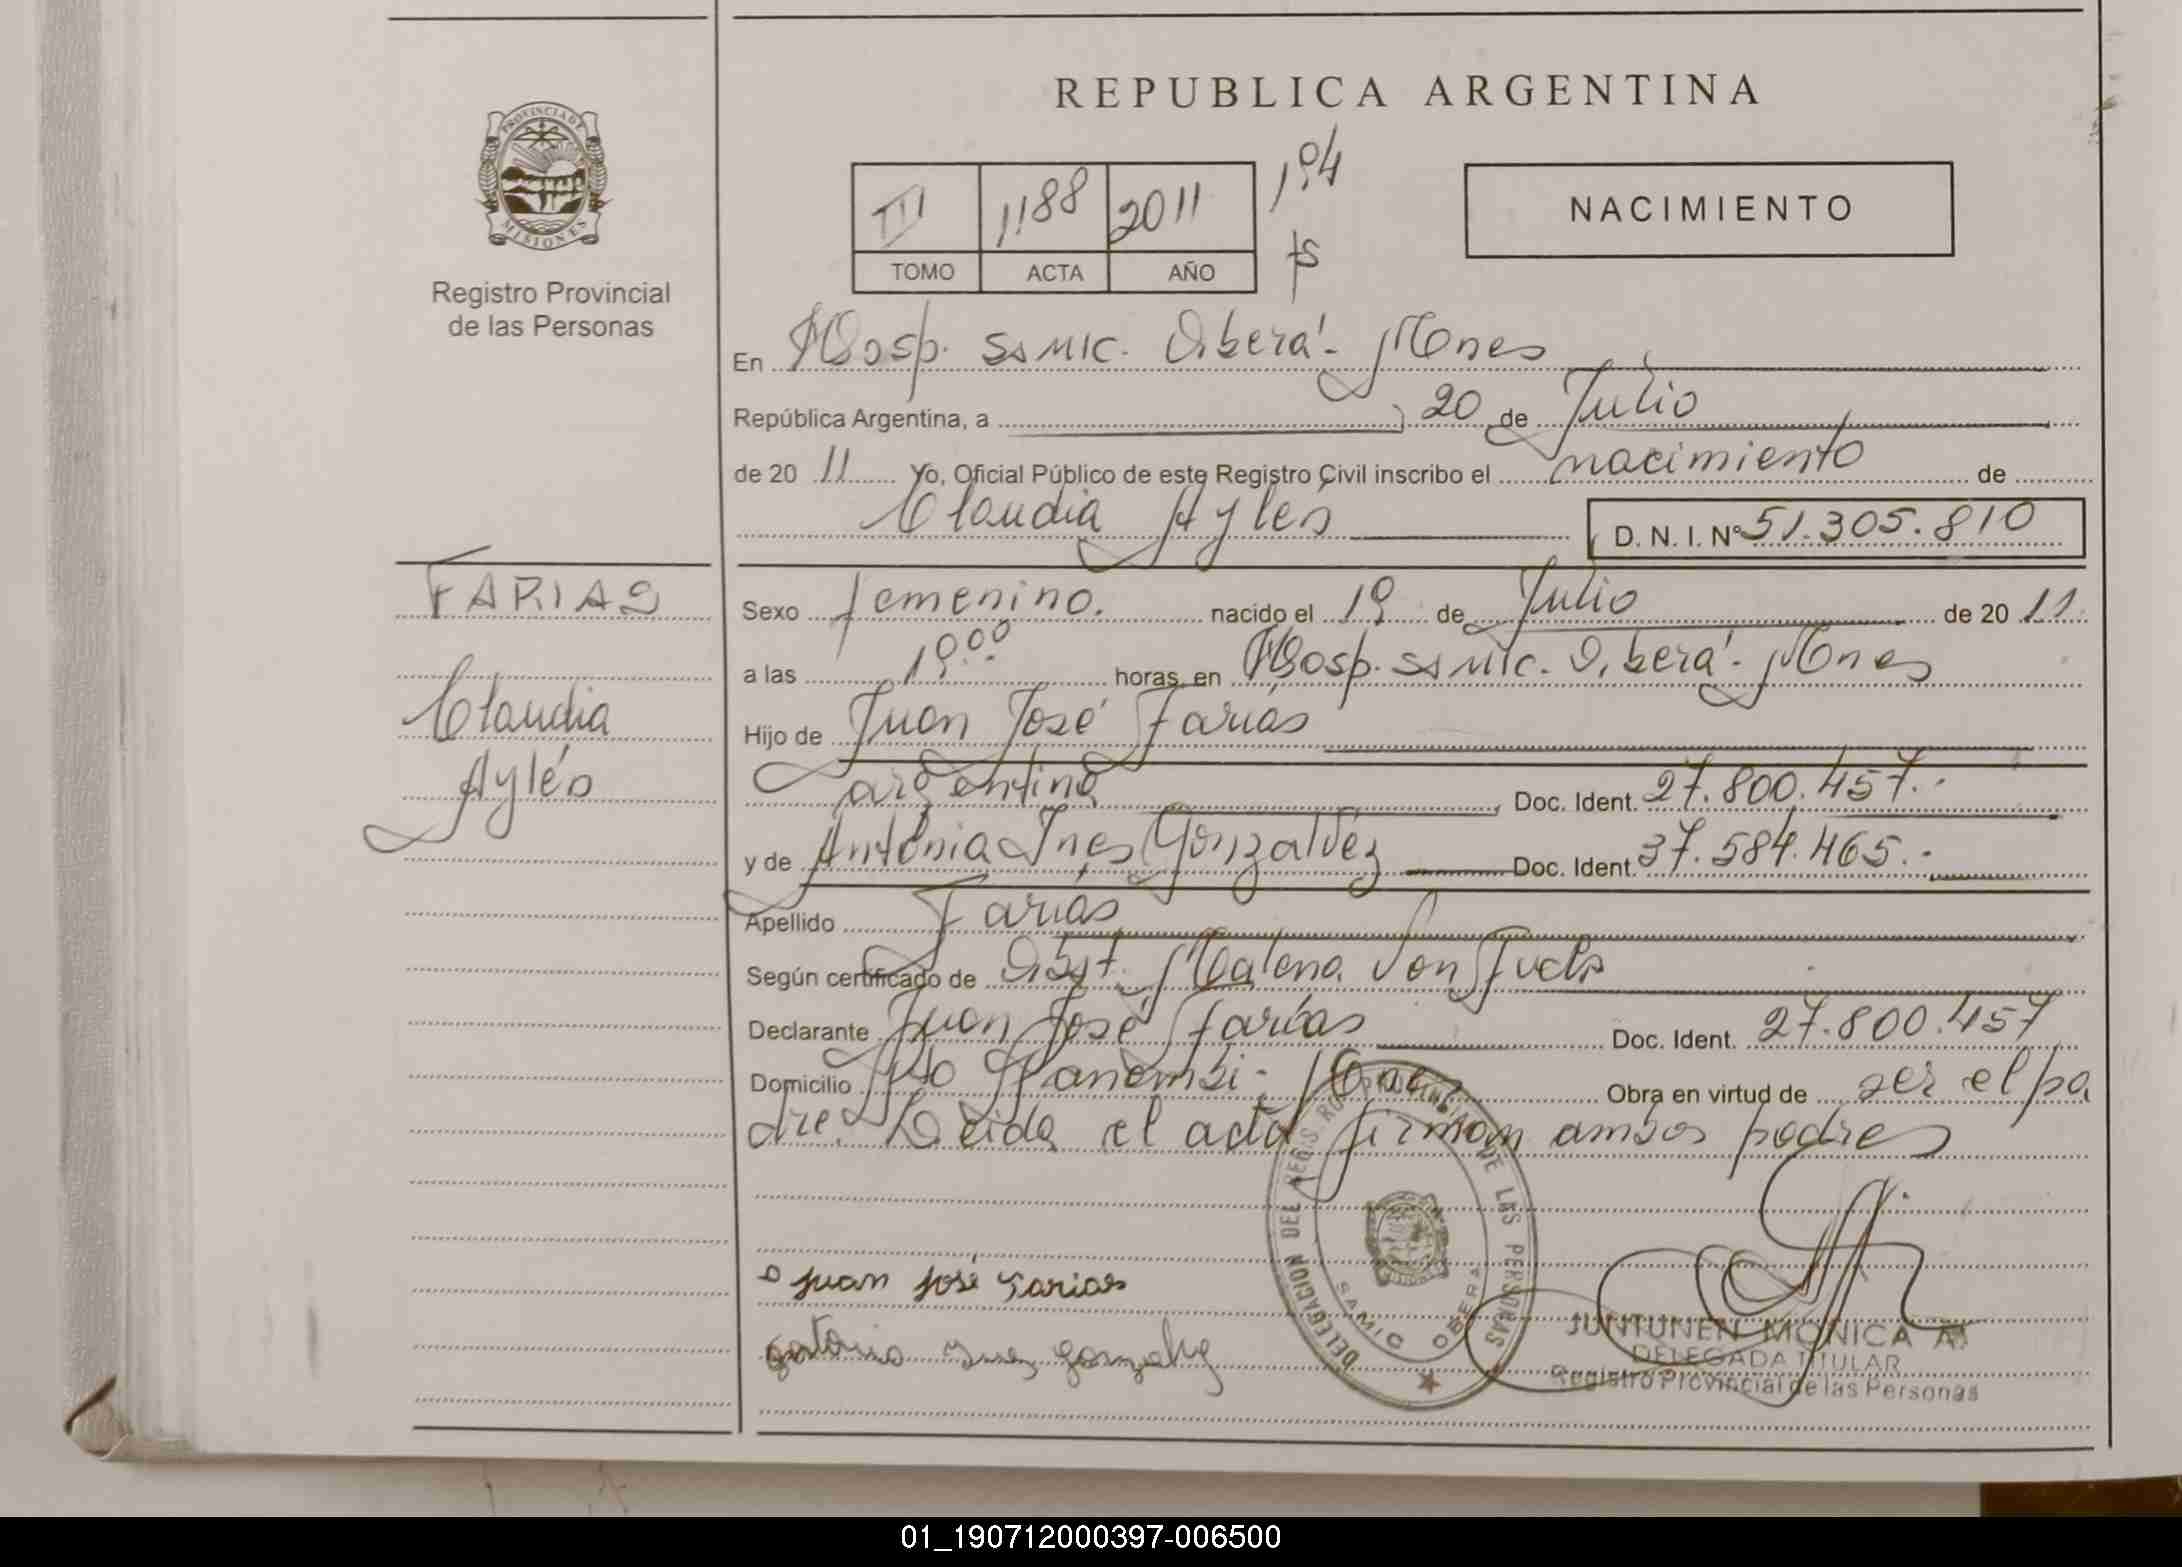 REPUBLICA ARGENTINA
PROVINCIA DE
MISIONES
Registro Provincial
de las Personas
III 1188 2011
TOMO ACTA AÑO
NACIMIENTO
En Hosp. SAMIC. Oberá - Mnes
República Argentina, a 20 de Julio
de 2011 Yo, Oficial Público de este Registro Civil inscribo el nacimiento de
Claudia Aylés
D. N. I. Nº 51.305.810
FARIAS
Claudia
Aylés
Sexo femenino. nacido el 19 de Julio de 2011
a las 19:00 horas, en Hosp. SAMIC. Oberá - Mnes
Hijo de Juan José Farias
argentino Doc. Ident. 27.800.457.-
y de Antonia Ines Gonzalvez Doc. Ident. 37.584.465.-
Apellido Farias
Según certificado de Obst. Malena Von
Declarante Juan José Farias Doc. Ident. 27.800.457
Domicilio Panambi - Mnes Obra en virtud de ser el pa
dre. Leida el acta firman ambos padres
Juan José Farias
Antonia Ines Gonzalvez
DELEGACION DEL REGISTRO PROVINCIAL DE LAS PERSONAS
SAMIC OBERA
JUNTUNEN MONICA A.
DELEGADA TITULAR
Registro Provincial de las Personas
01_190712000397-006500